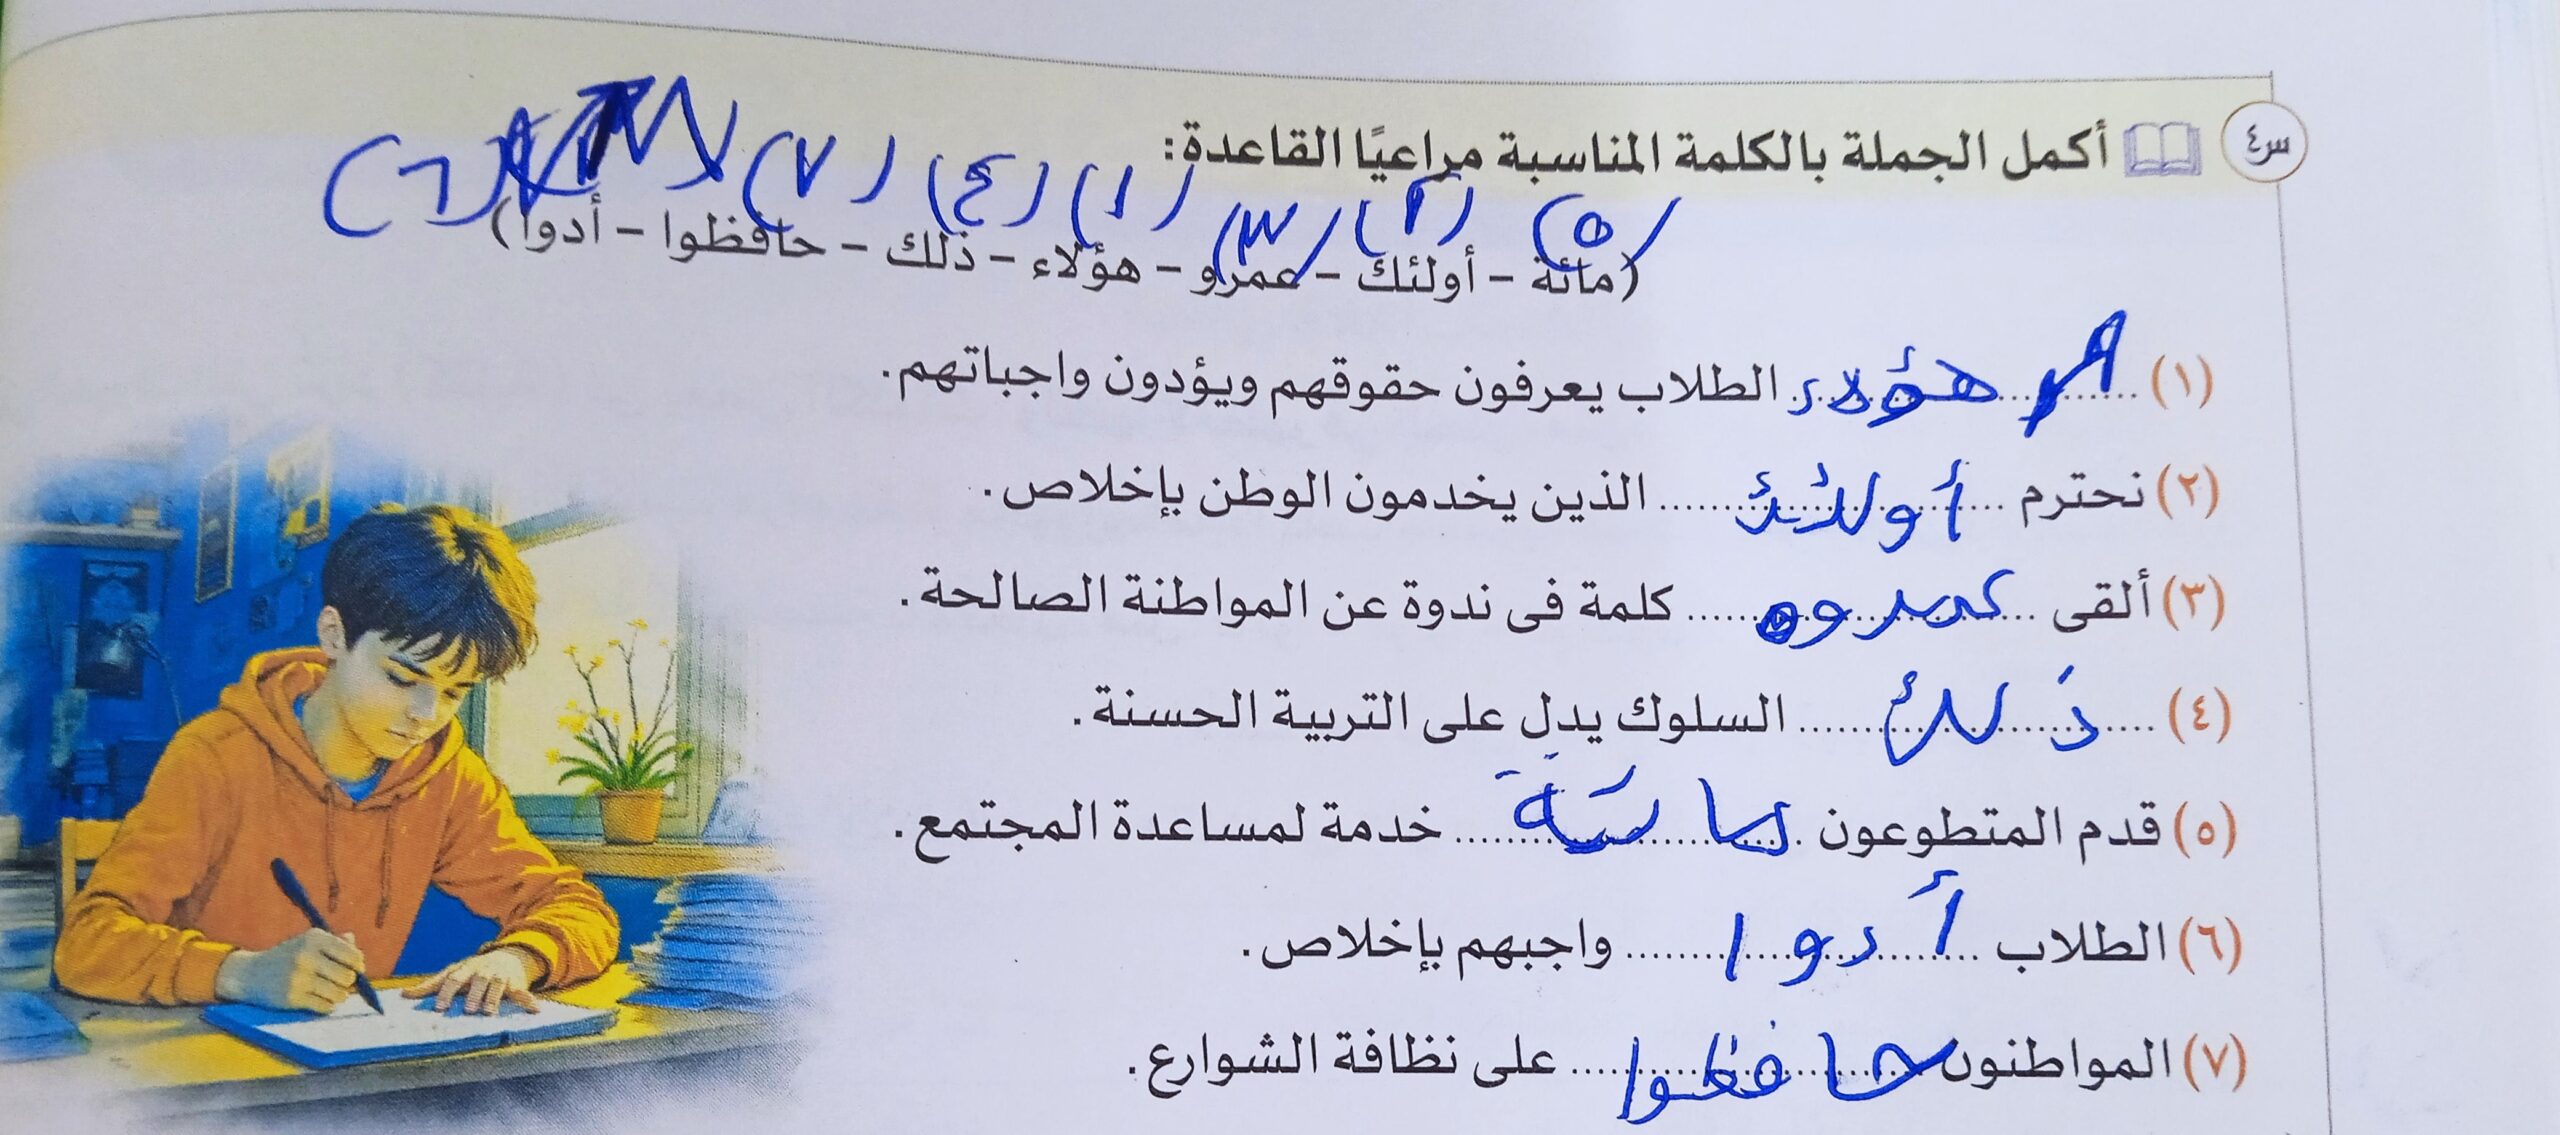 س٤ أكمل الجملة بالكلمة المناسبة مراعيًا القاعدة:
(٥) (٢) (٣) (١) (٤) (٧) (٦)
(مائة – أولئك – عمرو – هؤلاء – ذلك – حافظوا – أدوا)
(١) هؤلاء الطلاب يعرفون حقوقهم ويؤدون واجباتهم.
(٢) نحترم أولئك الذين يخدمون الوطن بإخلاص.
(٣) ألقى عمرو كلمة فى ندوة عن المواطنة الصالحة.
(٤) ذلك السلوك يدل على التربية الحسنة.
(٥) قدم المتطوعون مائة خدمة لمساعدة المجتمع.
(٦) الطلاب أدوا واجبهم بإخلاص.
(٧) المواطنون حافظوا على نظافة الشوارع.